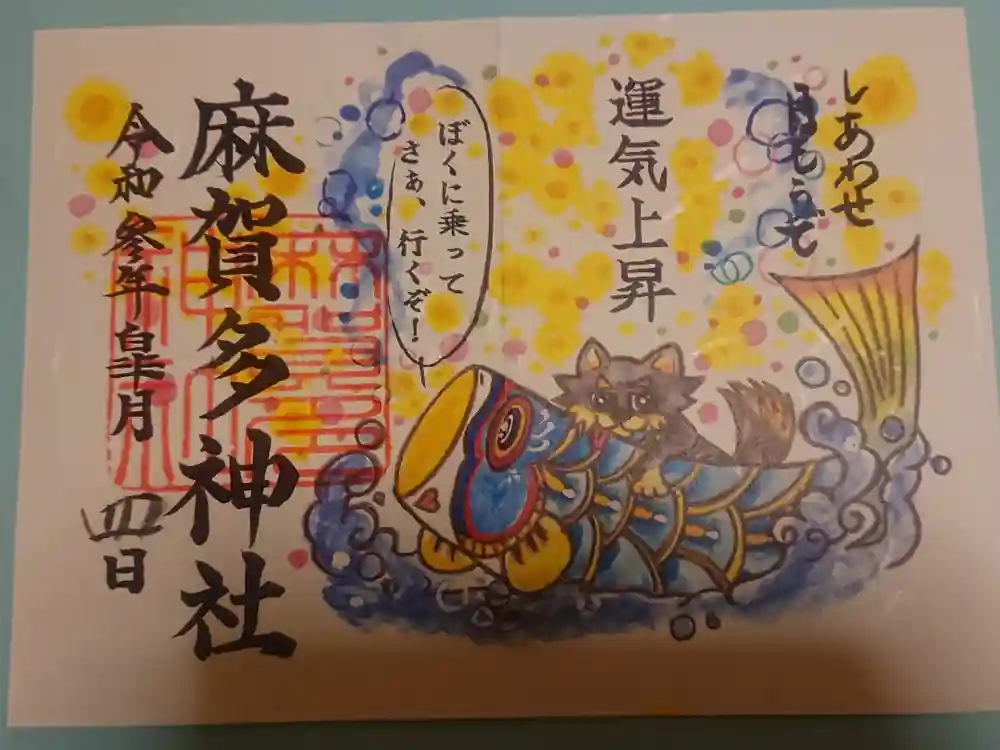 しあわせ
運気上昇
ぼくに乗って
さぁ、行くぞ！
麻賀多神社
令和参年皐月四日